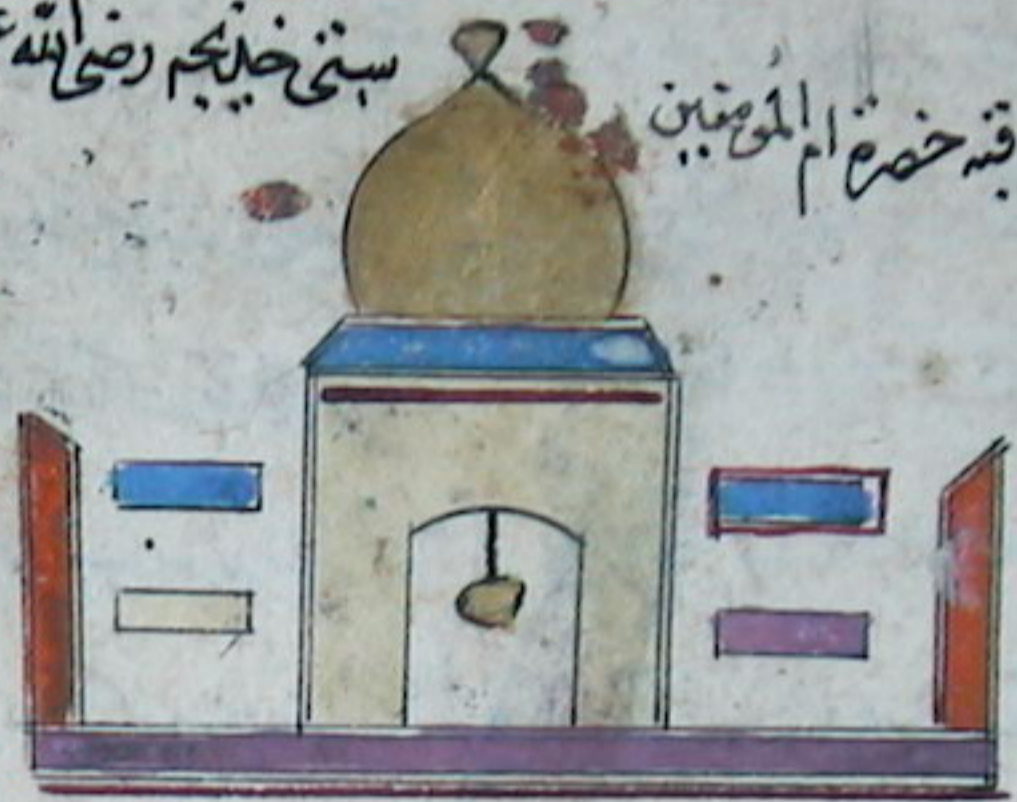 قبه حضرة ام المؤمنين
ستى خديجه رضى الله